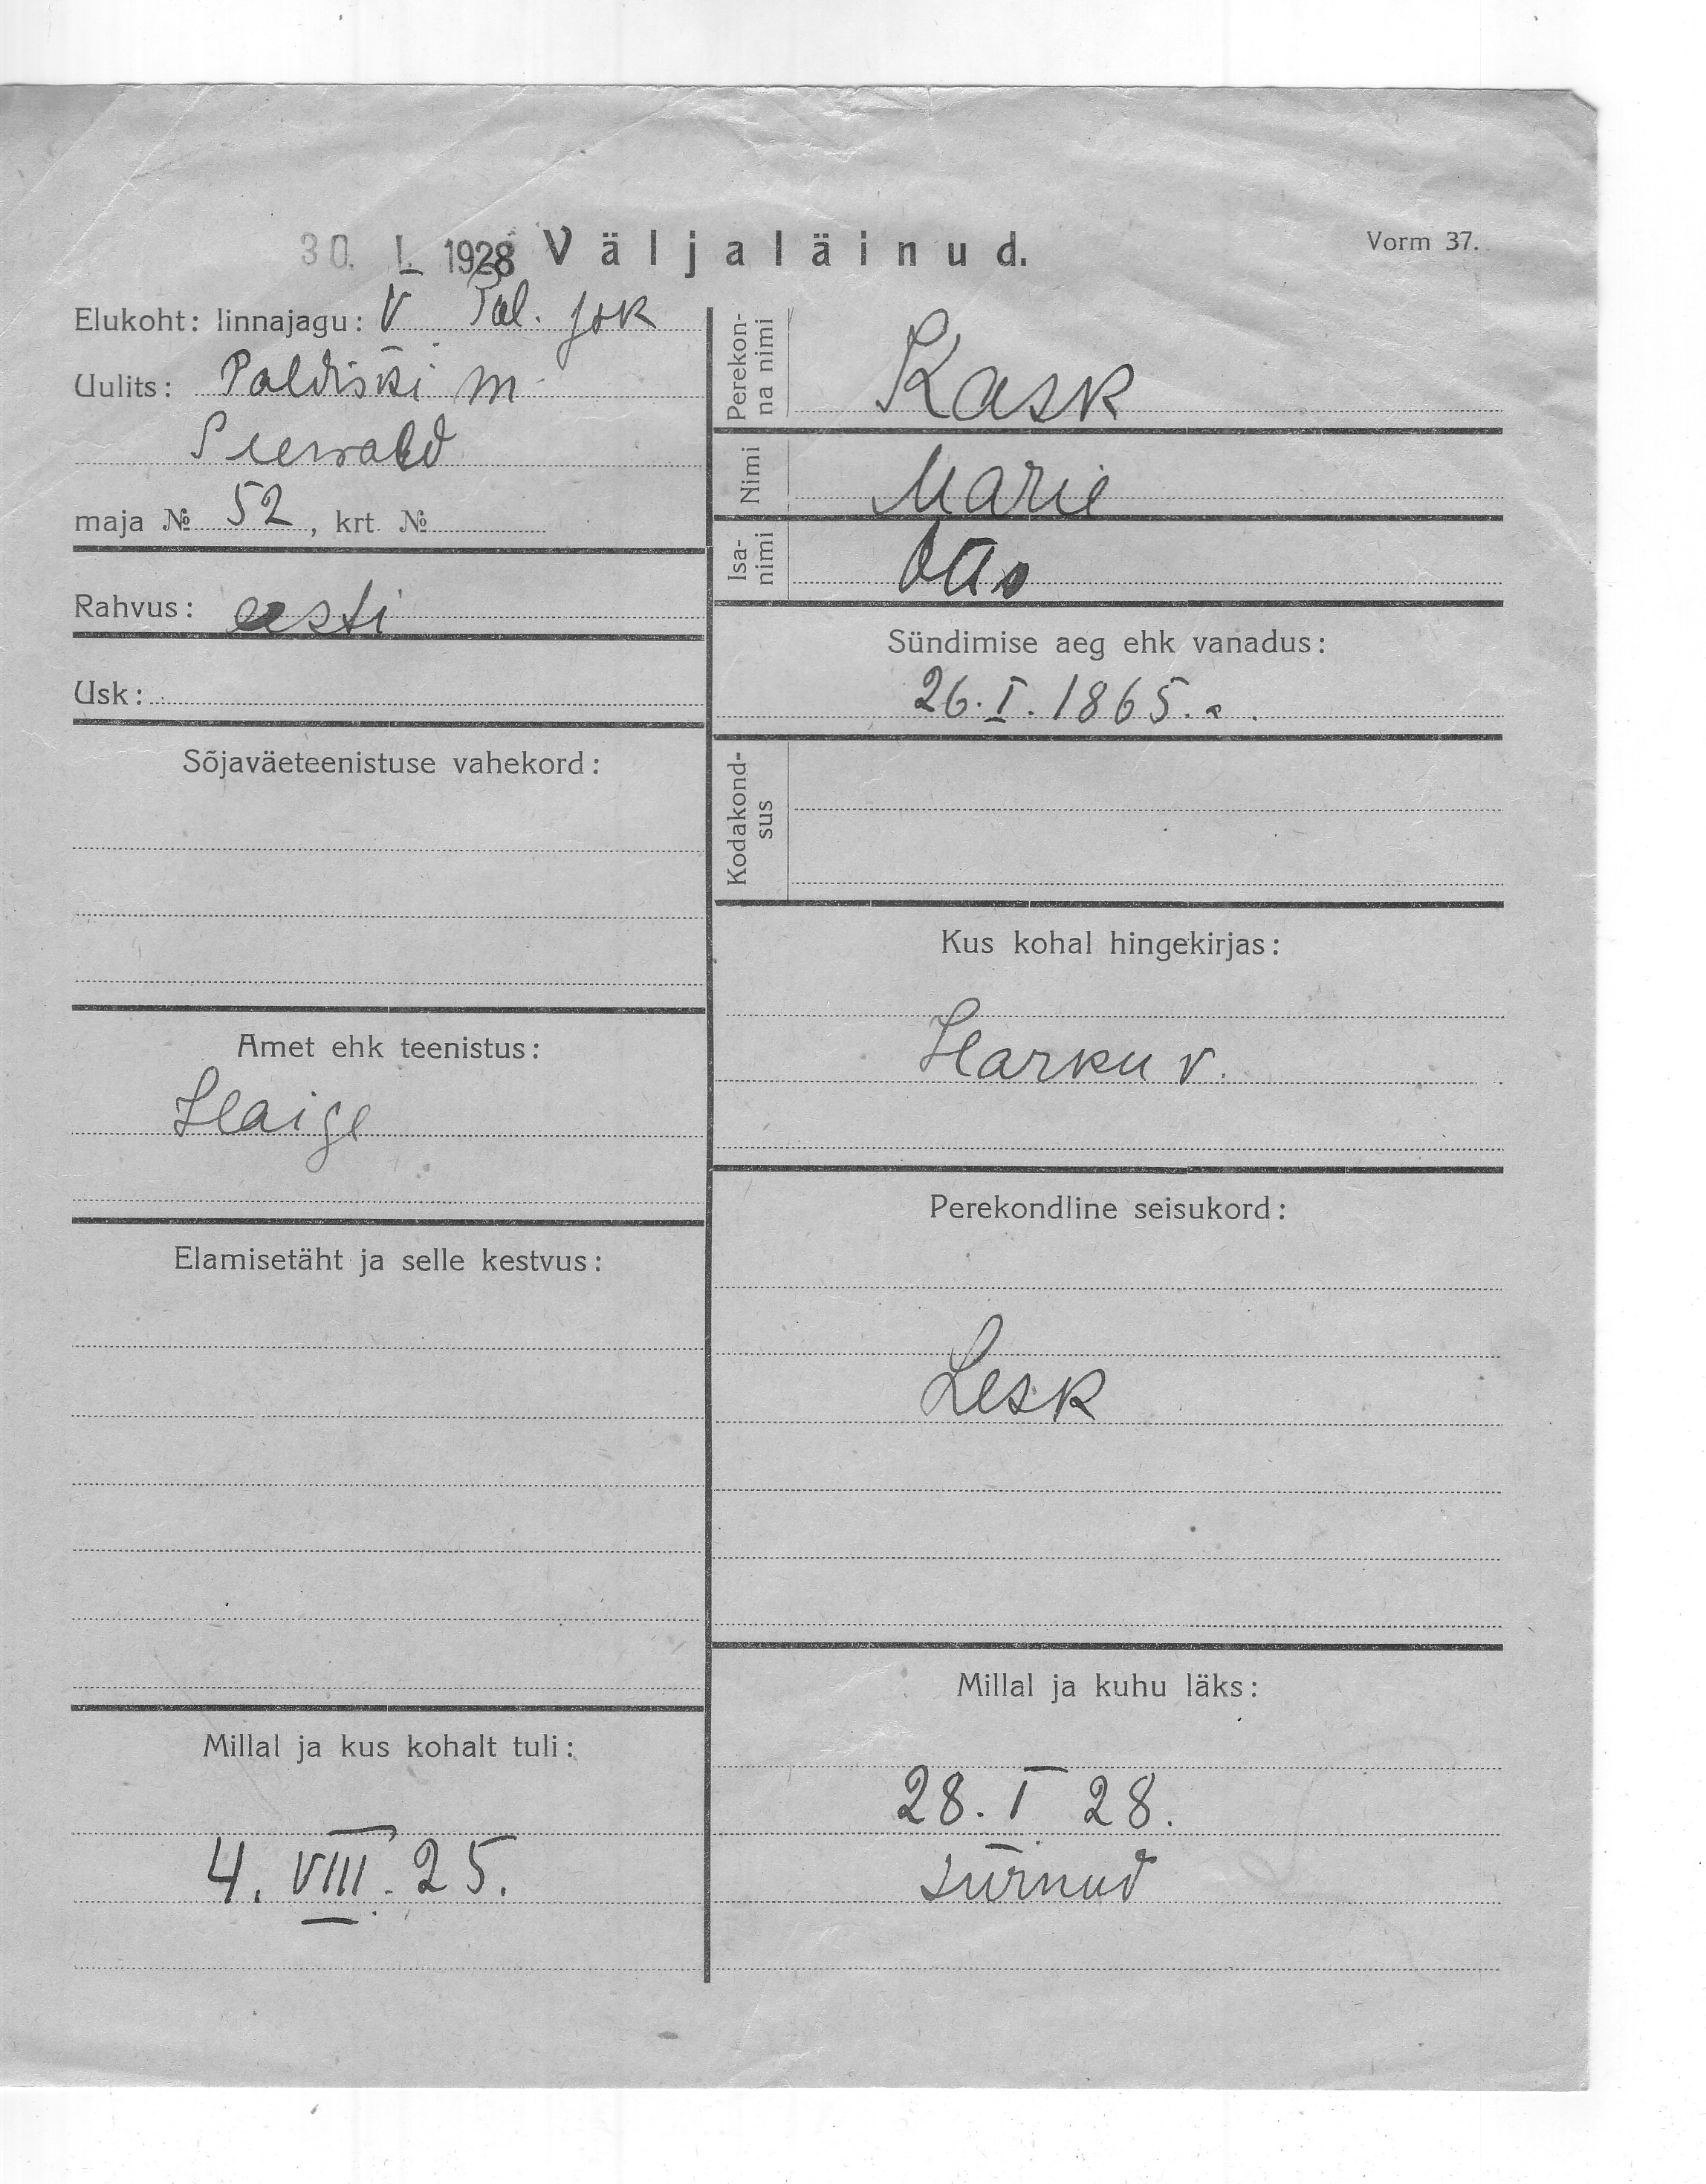 30. I. 1928 Väljaläinud.
Vorm 37.
Elukoht: linnajagu: V Pol. jsk
Uulits: Paldiski m
Seewald
maja № 52, krt. №
Rahvus: eesti
Usk:
Sõjaväeteenistuse vahekord:
Amet ehk teenistus:
Haige
Elamisetäht ja selle kestvus:
Millal ja kus kohalt tuli:
4. VIII. 25.
Perekon-
na nimi
Kask
Nimi
Marie
Isa-
nimi
Sündimise aeg ehk vanadus:
26. I. 1865. a.
Kodakond-
sus
Kus kohal hingekirjas:
Harku v.
Perekondline seisukord:
Lesk
Millal ja kuhu läks:
28. I 28.
surnud